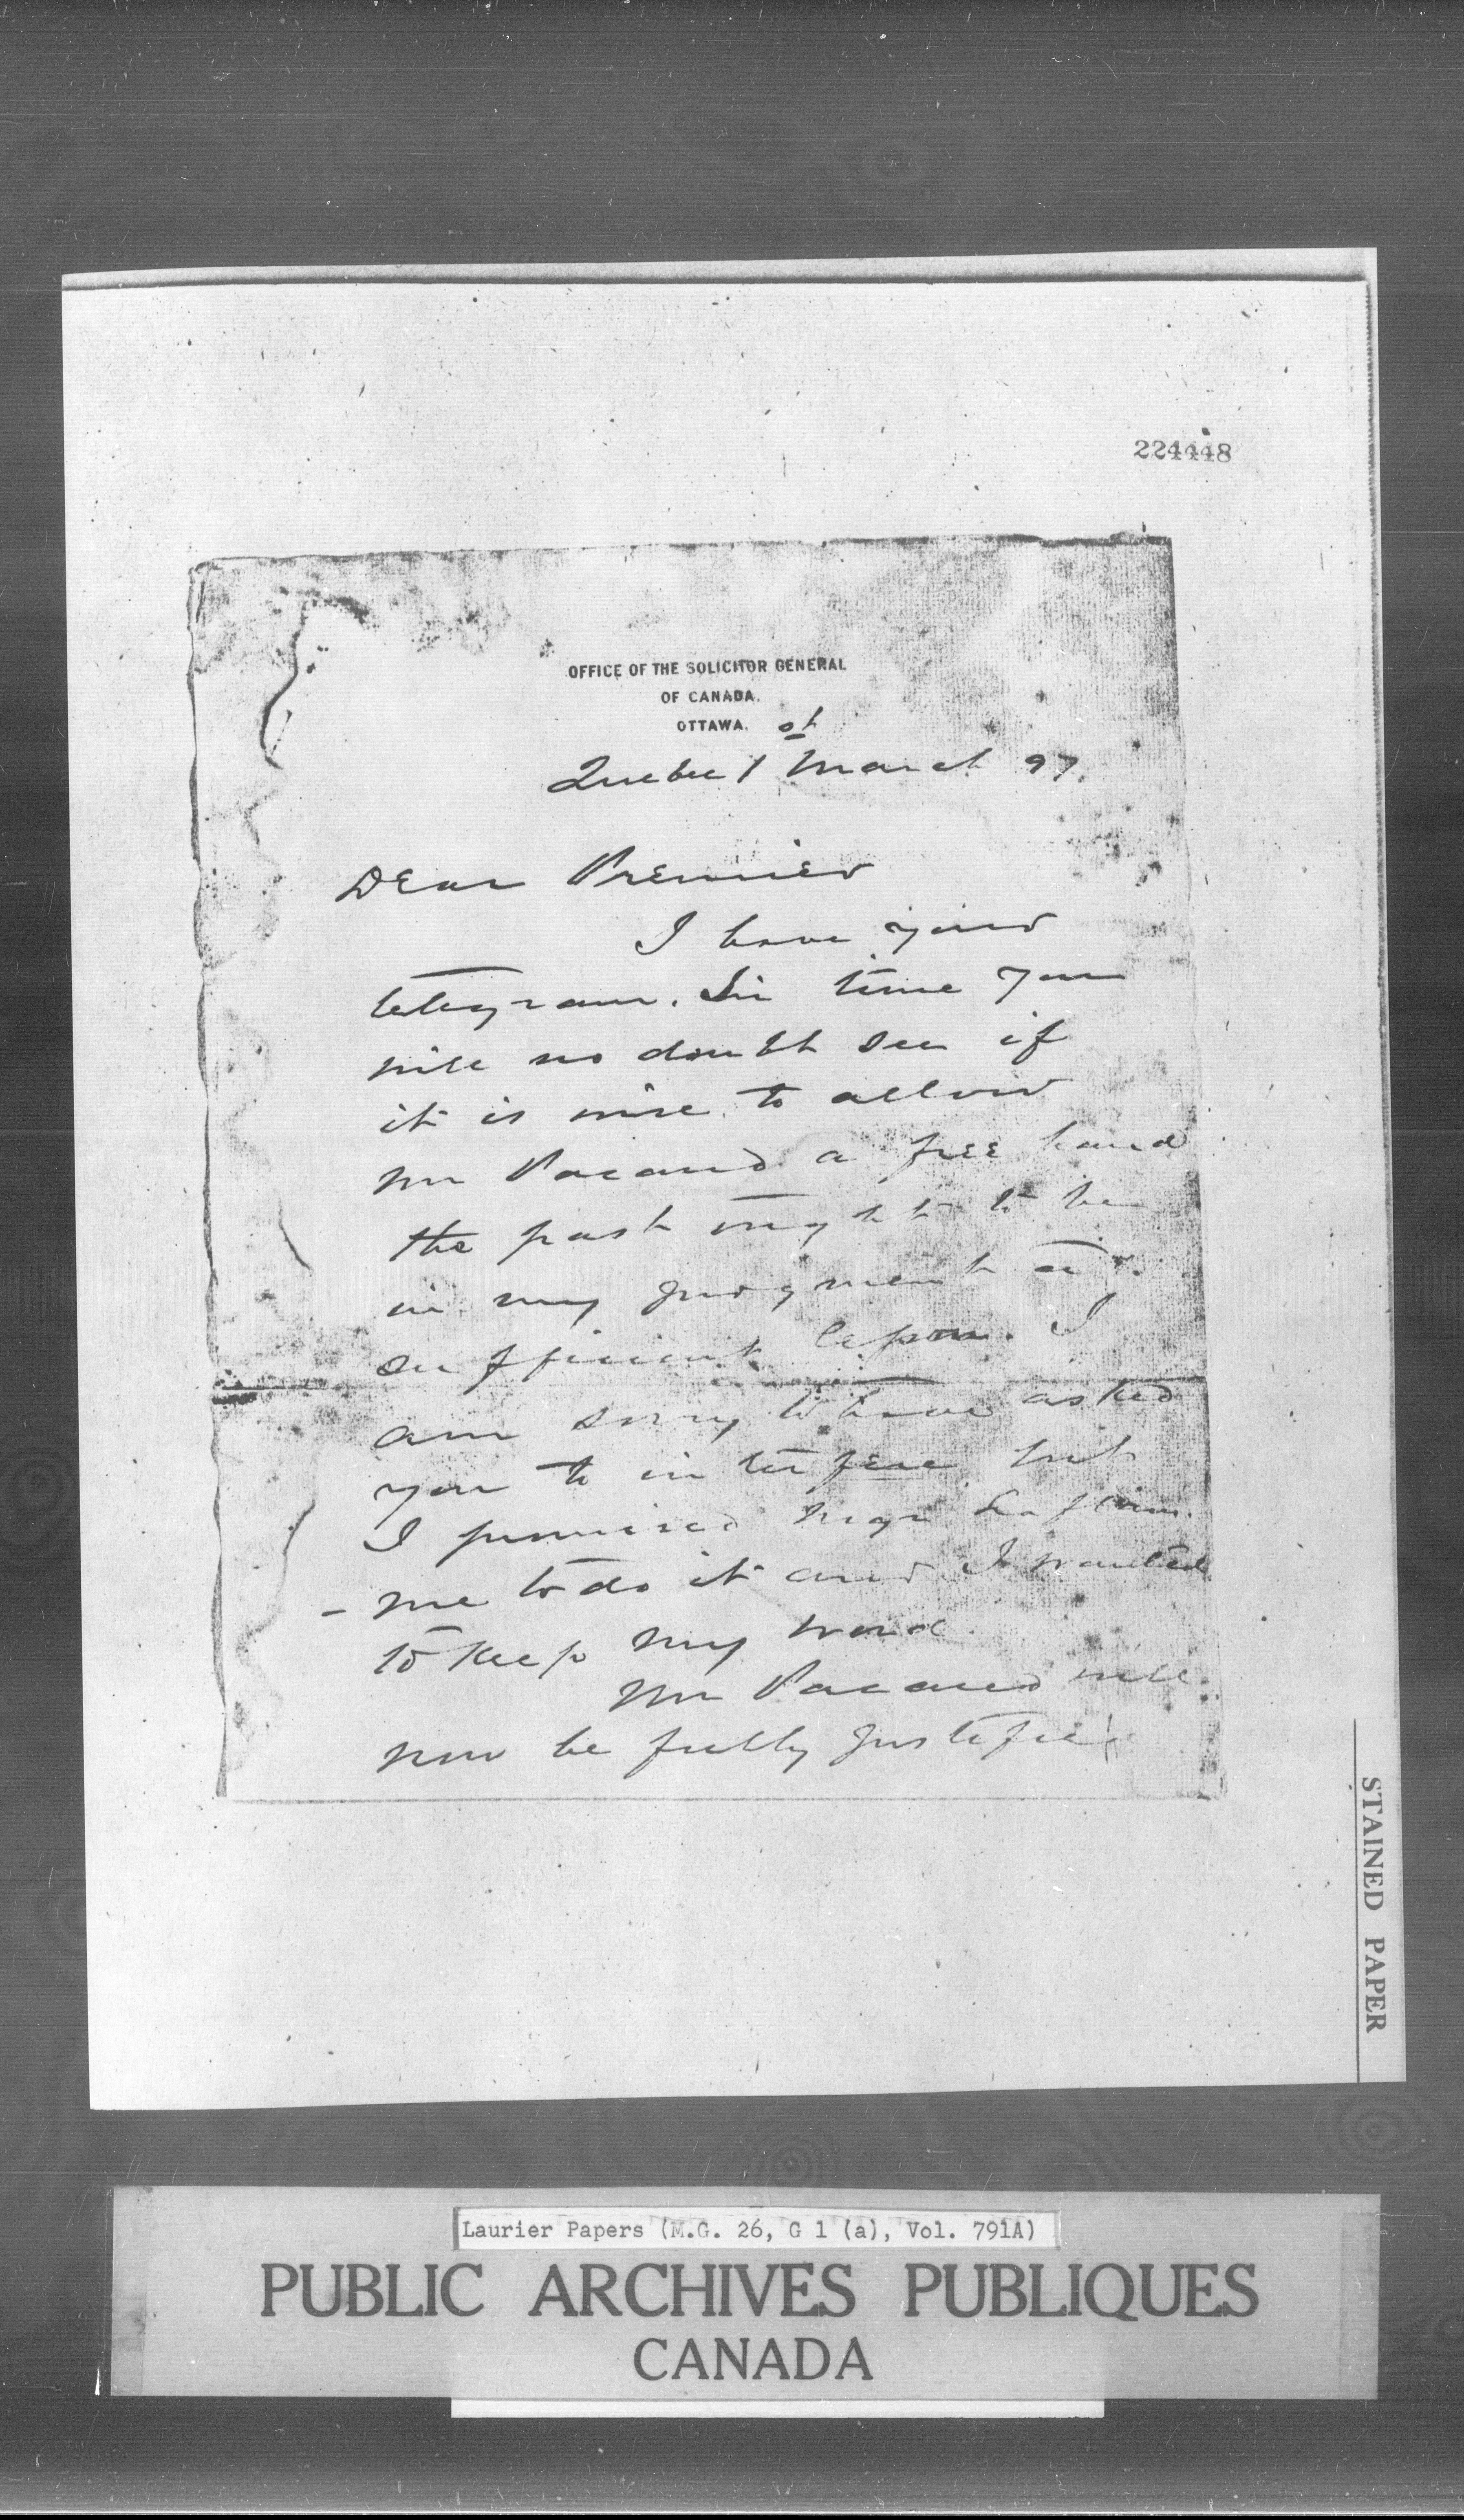 224448
OFFICE OF THE SOLICITOR GENERAL
OF CANADA.
OTTAWA.
Quebec 1st March 97.
Dear Premier
I have your
telegram. In time you
will no doubt see if
it is wise to allow
Mr Pacaud a free hand
the past ought to be
in my judgment a
sufficient lesson. I
am sorry to have asked
you to interfere but
I promised Mgr Laflam
-me to do it and I wanted
to keep my word.
Mr Pacaud will
now be fully justified
STAINED PAPER
Laurier Papers (M.G. 26, G 1 (a), Vol. 791A)
PUBLIC ARCHIVES PUBLIQUES
CANADA